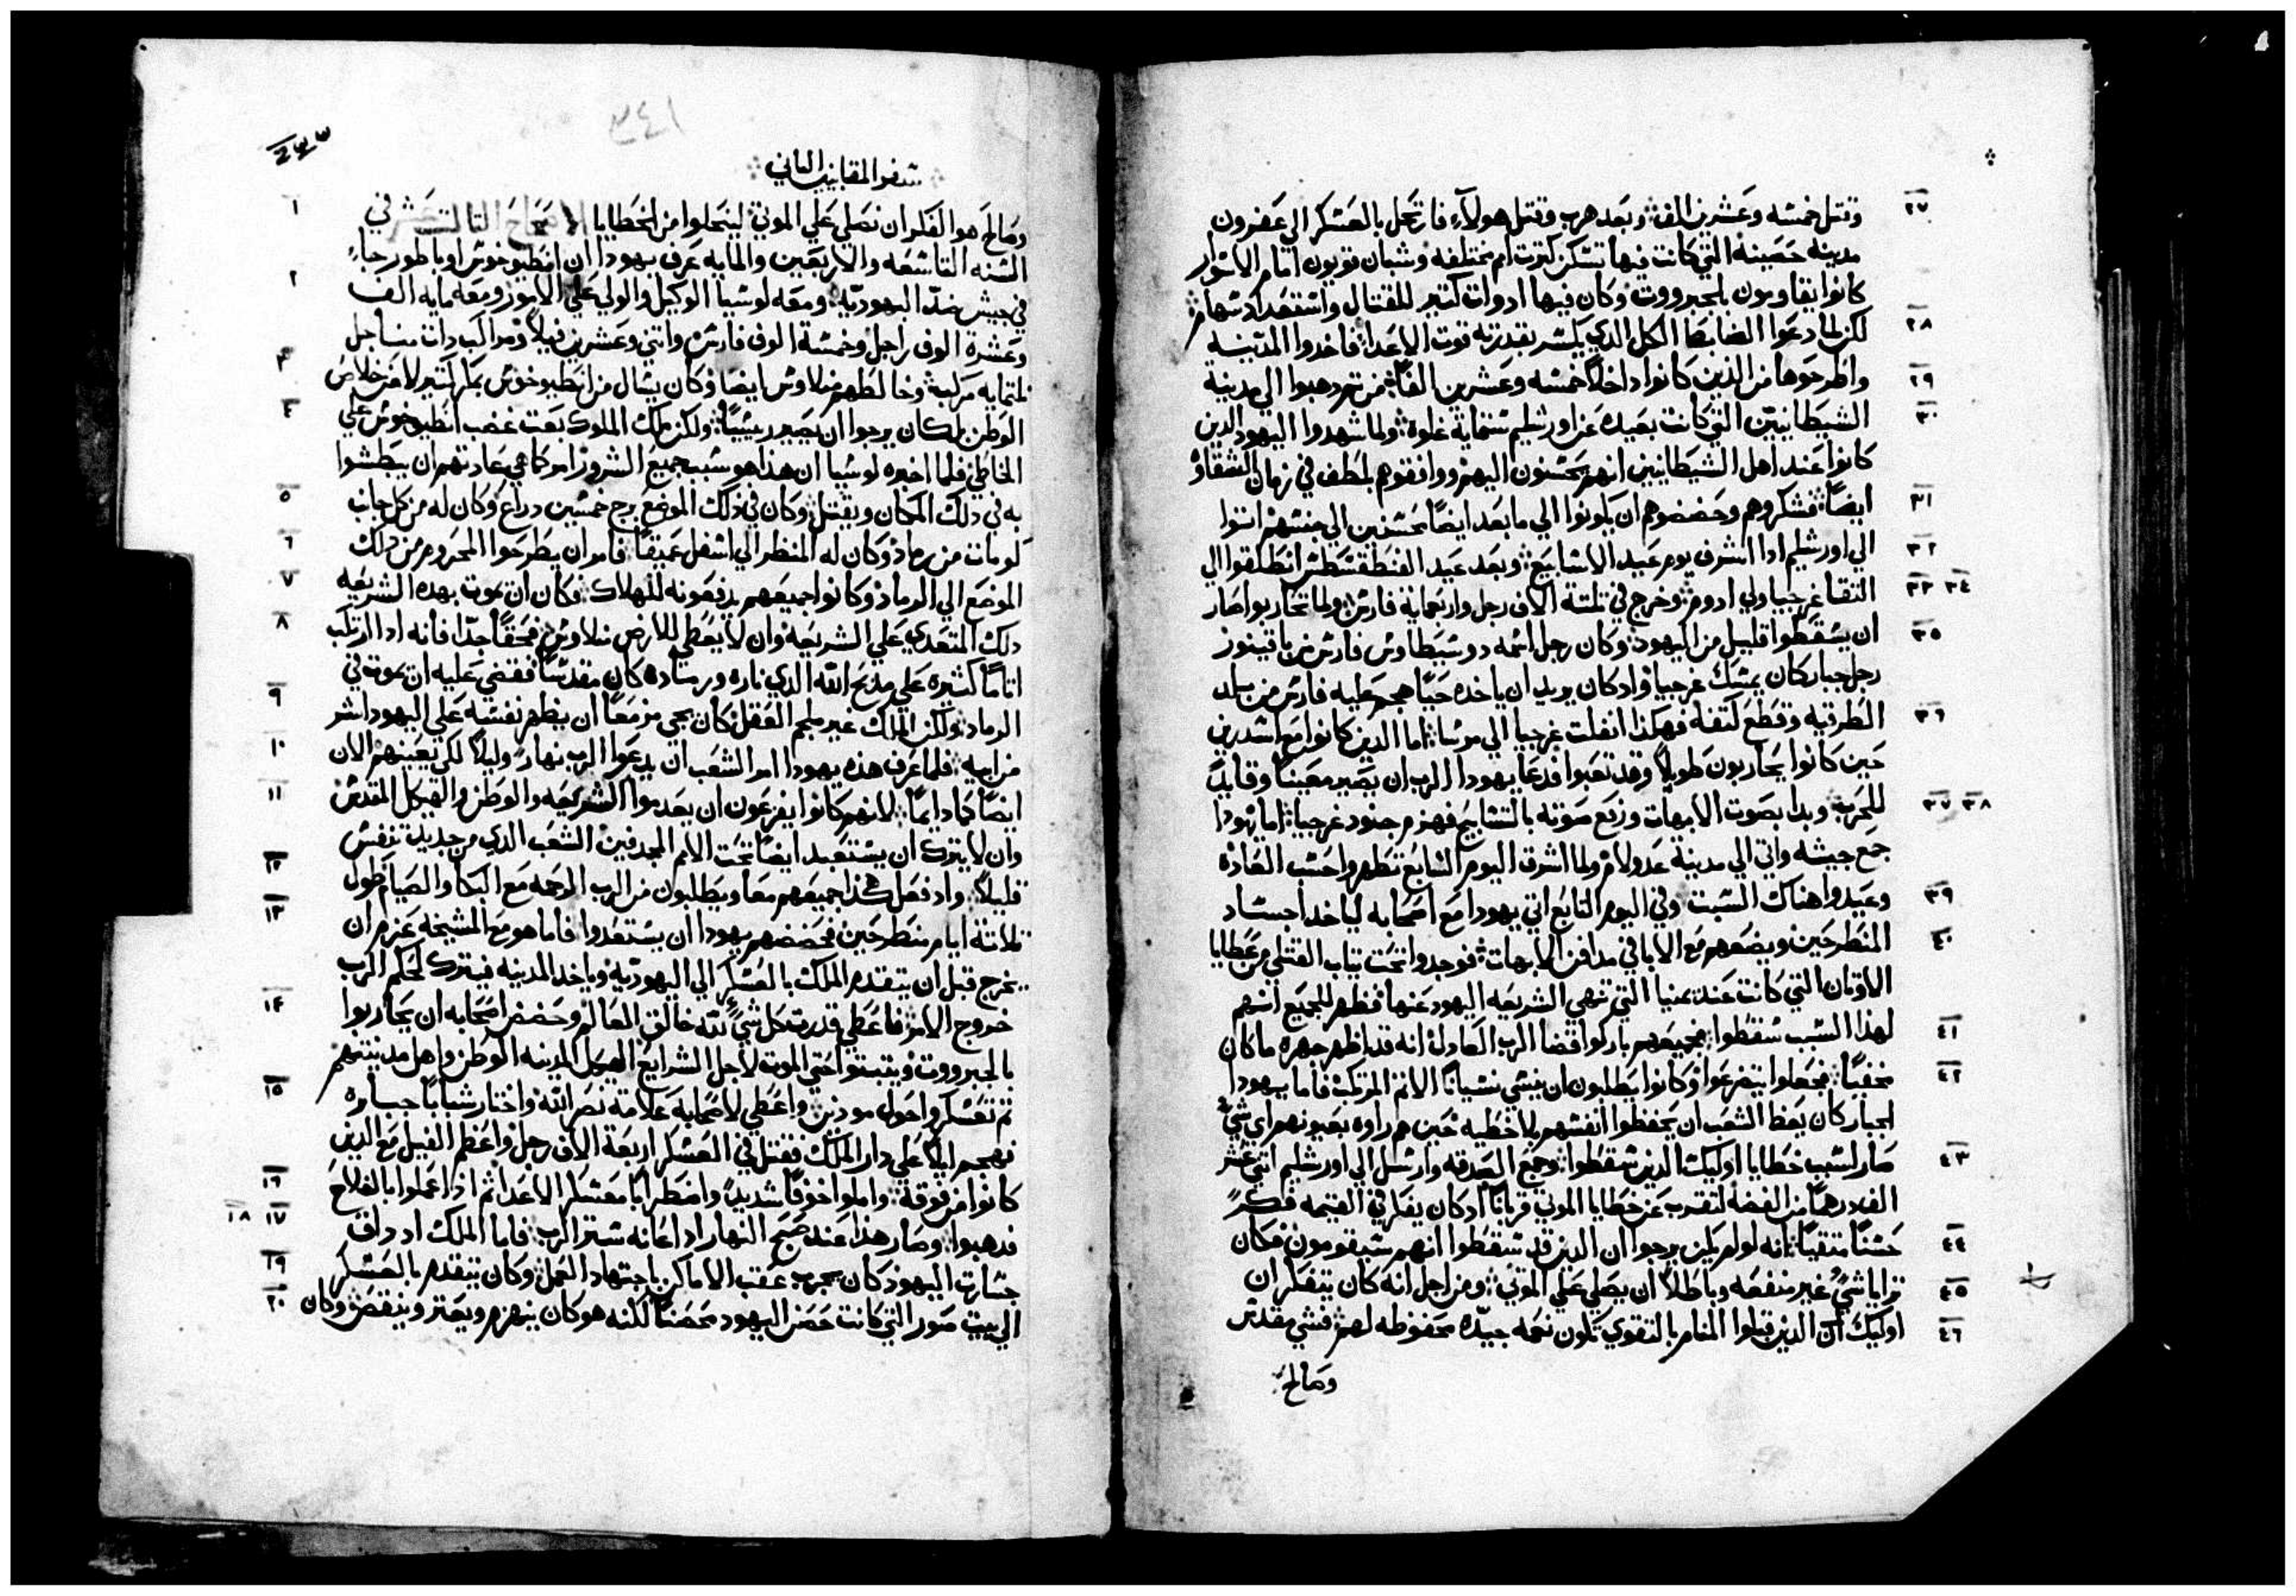 ٢٧ وقتل خمسه وعشرين الف وبعد هرب وقتل هولآءِ فارتحل بالعسكر الي عفرون
مدينه حصينه التي كانت فيها تسكن كترت امم مختلفه وشبان قويون امام الاسوار
كانوا يقاومون بالجبرووت وكان فيها ادوات كتير للقتال واستعداد سهام
٢٨ لكن لما دعوا الضابط الكل الذي يكسر بقدرته قوت الاعدا فاخدوا المدينه
٢٩ واطرحوها من الذين كانوا داخلاً خمسه وعشرين الفاً من تم دهبوا الي مدينة
٣٠ الشيطانيين التي كانت بعيده عن اورشليم ستماية غلوة ولما شهدوا اليهود الدين
كانوا عند اهل الشيطانيين انهم يحسنون اليهم ووافقوهم بلطف في زمان الشقاوه
٣١ ايضاً فشكروهم وحضضوهم ان يكونوا الي ما بعد ايضاً محسنين الي جنسهم اتوا
٣٢ الي اورشليم ادا اشرف يوم عيد الاسابيع وبعد عيد الفنطقسطس انطلقوا الي
٣٣ ٣٤ التقا غرجيا ولي ادوم وخرج في تلتة الاف رجل واربعماية فارس ولما تحاربوا صار
٣٥ ان يسقطوا قليل من اليهود وكان رجل اسمه دوسيطاوس فارس من باقينور
رجل جبار كان يمسك غرجيا واد كان يريد ان ياخده حياً هجم عليه فارس من بلد
٣٦ الطرقيه وقطع كتفه فهكذا انفلت غرجيا الي مرسا اما الدين كانوا مع اسدرين
حين كانوا يحاربون طويلاً وقد تعبوا فدعا يهودا الرب ان يصير معيناً وقايداً
٣٧ ٣٨ للحرب وبدا بصوت الابهات ورفع صوته بالتسابيح فهزم جنود غرجيا اما يهودا
جمع جيشه واتي الي مدينة عدولام ولما اشرق اليوم السابع تطهروا حسب العاده
٣٩ وعيدوا هناك السبت وفي اليوم التابع اتي يهودا مع اصحابه لياخد اجساد
٤٠ المنطرحين ويضعهم مع الابا في مدافن الابهات فوجدوا تحت تياب القتلي من عطايا
الاوتان التي كانت عند يمنيا التي تنهي الشريعه اليهود عنها فظهر للجميع انهم
٤١ لهذا السبب سقطوا فجميعهم باركوا قضا الرب العادل انه قد اظهر جهره ما كان
٤٢ مخفياً فجعلوا يتضرعوا وكانوا يطلبون ان ينسي نسياناً الاتم المرتكب فاما يهودا
الجبار كان يعظ الشعب ان يحفظوا انفسهم بلا خطيه حين هم راوه بعيونهم اي شي
٤٣ صار لسبب خطايا اوليك الدين سقطوا وجمع الصدقه وارسل الي اورشليم اتني عشر
الف درهما من الفضه لتقرب عن خطايا الموتي قرباناً اد كان يفكر في القيمه فكراً
٤٤ حسناً متقياً انه لو لم يكن يرجوا ان الدين قد سقطوا انهم سيقومون فكان
٤٥ ترايا شيُ غير منفعه وباطلاً ان يصلي علي الموتي ومن اجل انه كان يتفكر ان
٤٦ اوليك ان الدين قبلوا المنام بالتقوي تكون نعمه جيده محفوظه لهم فشي مقدس
وصالح
٣٤١
سفر المقابيين التاني
١ وصالح هو الفكر ان نصلي علي الموتي لينحلوا من الخطايا الاصحاح التالت عشر في
السنه التاسعه والاربعين والمايه عرف يهودا ان انطيوخوس اوباطور جاءِ
٢ في جيش ضد اليهوديه ومعه لوسيا الوكيل والولي علي الامور ومعه مايه الف
وعشرة الوف راجل وخمسة الوف فارس واتني وعشرين فيلاً ومراكب دات مناجل
٣ تلتمايه مركبه وخالطهم منلاوس ايضا وكان يسال من انطيوخوس بمكر كتير لا من خلاص
٤ الوطن بل كان يرجوا ان يصير رييساً ولكن ملك الملوك بعت غضب انطيوخوس علي
الخاطي فلما اخبره لوسيا ان هذا هو سبب جميع الشرور امر كما هي عادتهم ان يبطشوا
٥ به في دلك المكان ويقتل وكان في ذلك الموضع برج خمسين دراع وكان له من كل جانب
٦ كومات من رماد وكان له المنظر الي اسفل عميقاً فامر ان يطرحوا المحروم من دلك
٧ الموضع الي الرماد وكانوا جميعهم يدفعونه للهلاك فكان ان يموت بهده الشريعه
٨ دلك المتعدي علي الشريعه وان لا يعطي للارض منلاوس فمحقاً جدّا فانه ادا ارتكب
اتاماً كثيره علي مدبح الله الدي ناره ورماده كان مقدساً فقضي عليه ان يموت في
٩ الرماد ولكن الملك غير ملجم العقل كان يجي مزمعاً ان يظهر نفسه علي اليهود اشر
١٠ من ابيه فلما عرف هذه يهودا امر الشعب ان يدعوا الرب نهاراً وليلاً لكي يعينهم الان
١١ ايضاً كما دايماً لانهم كانوا يفزعون ان يعدموا الشريعه والوطن والهيكل المقدس
وان لا يترك ان يستعبد ايضاً تحت الامم المجدفين الشعب الدي من جديد تنفس
١٢ قليلاً واد فعل هكذا جميعهم معا ويطلبون من الرب الرحمه مع البكا والصيام طول
١٣ تلاتة ايام منطرحين فحضضهم يهودا ان يستعدوا فاما هو مع المشيخه عزم ان
يخرج قبل ان يتقدم الملك بالعسكر الي اليهوديه وياخد المدينه فيترك لحكم الرب
١٤ خروج الامر فاعطي قدرت كل شيءٍ لله خالق العالم وحضض اصحابه ان يحاربوا
بالجبرووت ويتبتوا حتي الموت لاجل الشرايع الهيكل المدينه الوطن واهل مدينتهم
١٥ تم تعسكر واحول مودين واعطي لاصحابه علامة نصر الله واختار شباباً جبابره
فهجم ليلاً علي دار الملك فقتل في العسكر اربعة الاف رجل واعظم الفيل مع الدين
١٦ كانوا من فوقه واملوا خوفاً شديداً واضطراباً معسكر الاعدا تم اذ اعملوا بالفلاح
١٧ ١٨ فدهبوا وصار هذا عند صبح النهار اد اعانه ستر الرب فاما الملك اد داق
١٩ جسارت اليهود كان يجرب عقب الاماكن باجتهاد العمل وكان يتقدم بالعسكر
٢٠ الي بيت صور التي كانت حصن اليهود محصناً لكنه هو كان ينهزم ويعتر وينقص وكان